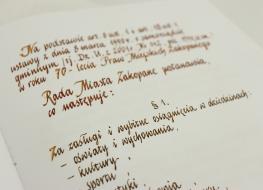 Na podstawie art. 8 ust. 1 art. 18 ust.
ustawy z dnia 8 marca 1990 r. o samorządzie
gminnym (tj. Dz. U. z 2001r. Nr 142, poz.
w roku 70-lecia Praw Miejskich Zakopanego
Rada Miasta Zakopane postanawia,
co następuje:
§ 1.
Za zasługi i wybitne osiągnięcia w dziedzinach:
- oświaty i wychowania,
- kultury,
sportu